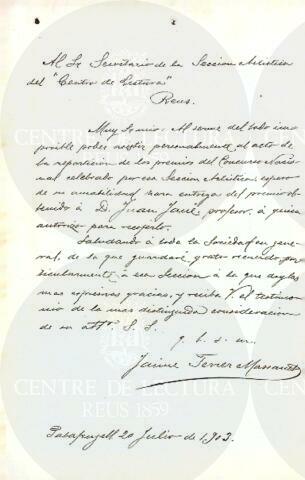 Al Sr. Secretario de la Sección Artística
del "Centro de Lectura"
Reus.
Muy Sr. mio: Al serme del todo im-
posible poder asistir personalmente al acto de
la repartición de los premios del Concurso Nacio-
nal celebrado por esa Sección Artística, espero
de su amabilidad hara entrega del premio ob-
tenido á D. Juan profesor, á quien
autorizo para recogerlo.
Saludando á toda la Sociedad en gene-
ral, de la que guardaré grato recuerdo, par-
ticularmente á esa Sección á la que doy las
mas expresivas gracias, y reciba V. el testimo-
nio de la mas distinguida consideración
de su att. S. S.
q. b. s. m.
Jaime Ferrer Massanet
20 Julio de 1903.
CENTRE DE LECTURA
REUS 1859